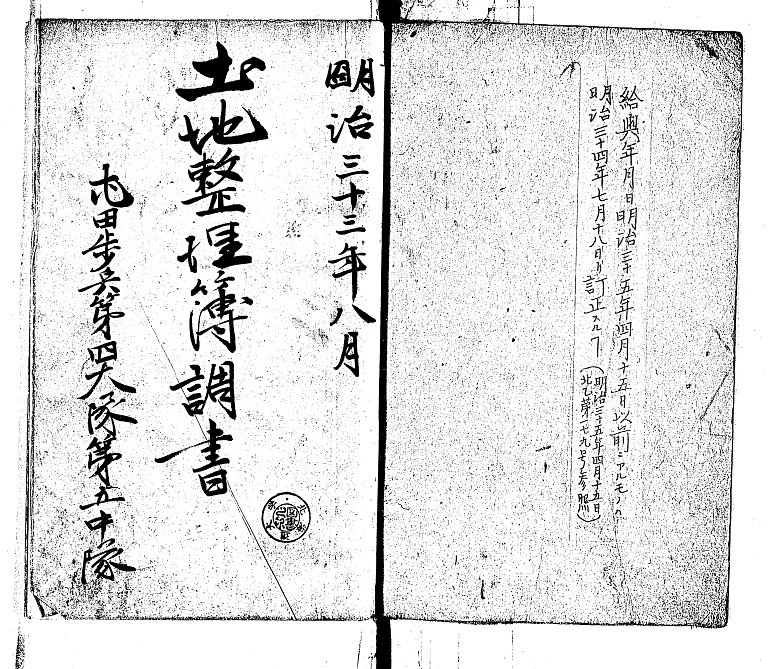 給與年月日明治三十五年四月十五日以前ニアルモノハ
明治三十四年七月十八日ヨリ訂正スルヿ
(明治三十五年四月十五日
北七第一七九号参照)
明治三十三年八月
土地整理簿調書
屯田歩兵第四大隊第五中隊